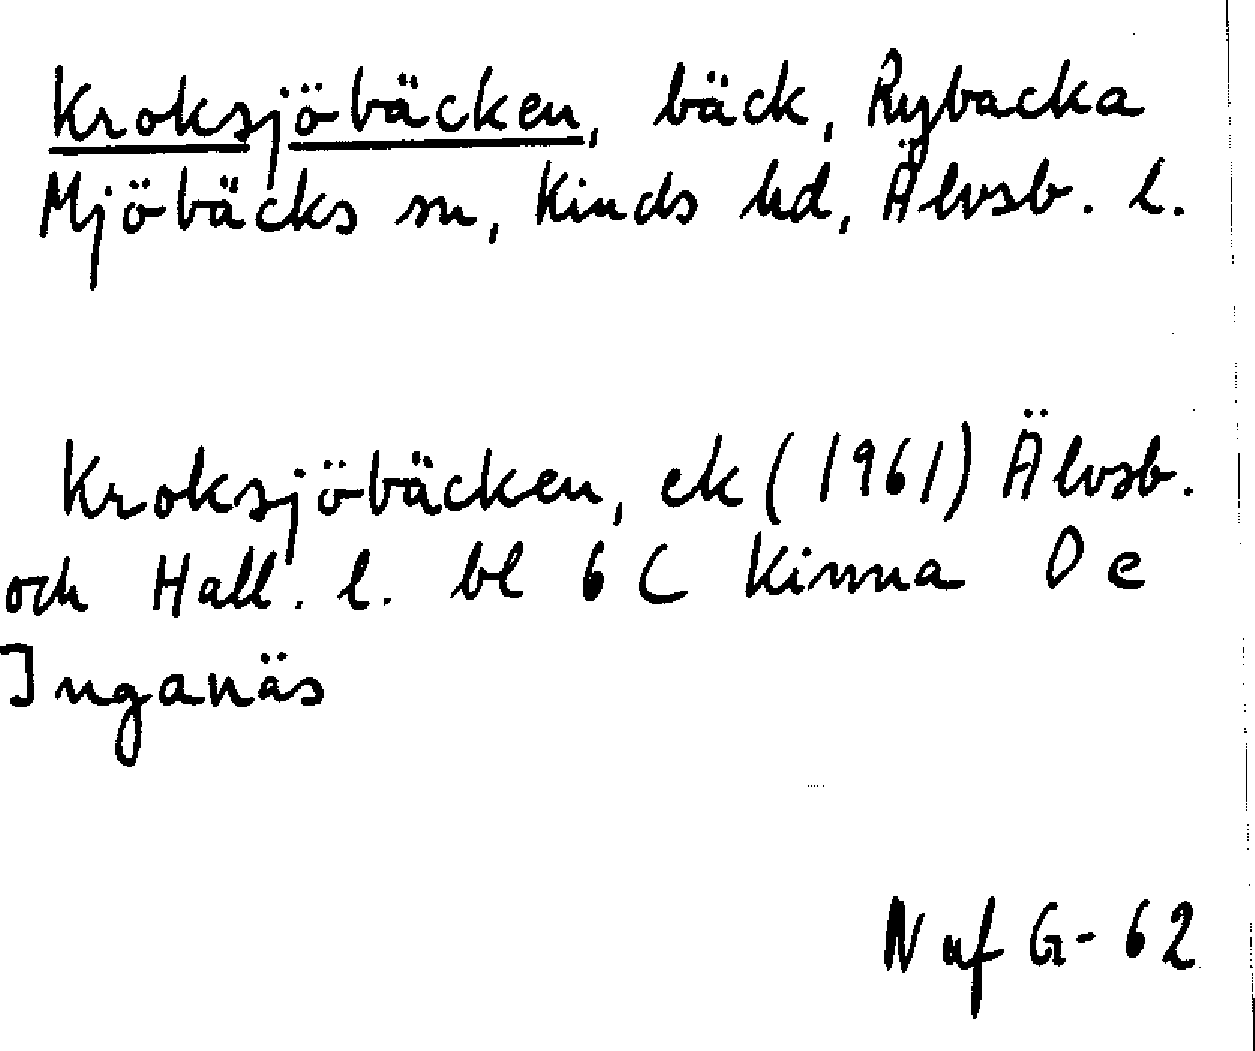 Kroksjöbäcken, bäck, Rybacka
Mjöbäcks sn, Kinds hd, Älvsb. l.
Kroksjöbäcken, ek (1961) Älvsb.
och Hall. l. bl 6 C Kinna D e
Inganäs
Naf G-62